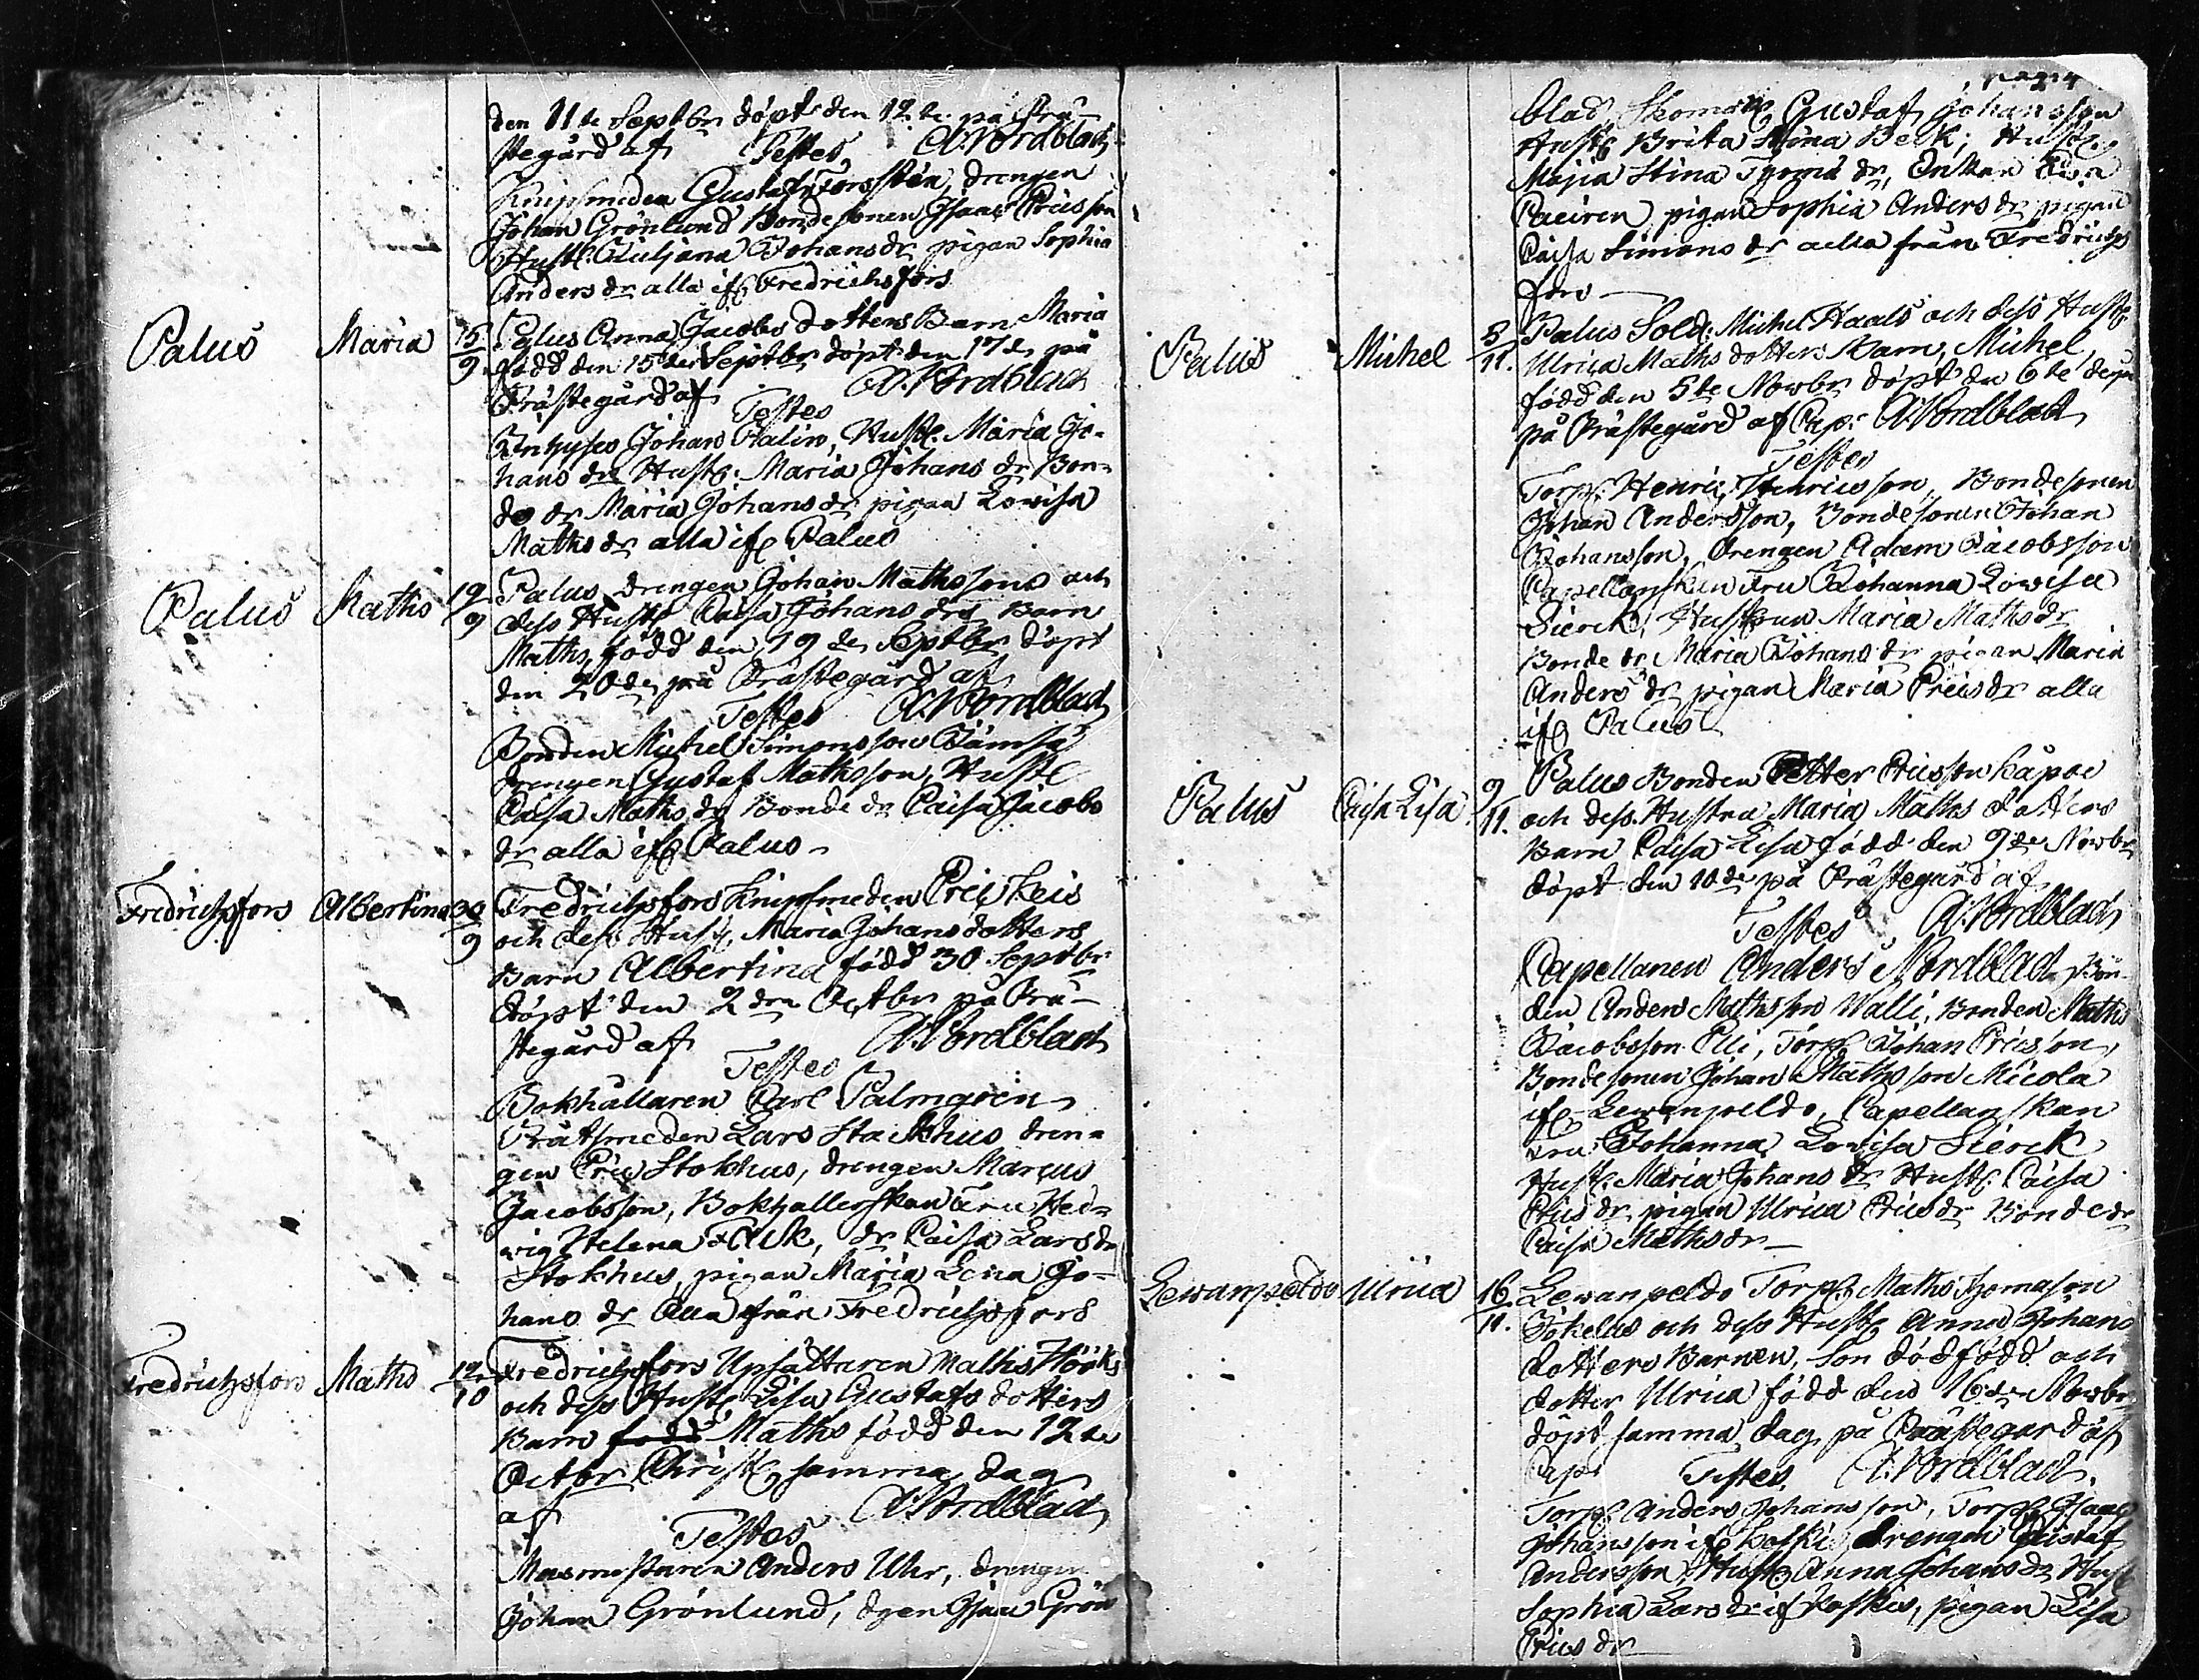 den 11te Septbr döpt den 12te på Prä-
stegård af Testes A. Nordblad
Knipsmeden Gustaf Forsstén, drengen
Johan Grönlund Bondesonen Isaac Ericsson
Hust. Juliana Johansdr pigan Sophia
Andersdr alla ifr Fredrichsfors
Palus Maria 15/9 Palus Anna Jacobs dotters Barn Maria
född den 15de Septbr döpt den 17de på
Prästegård af A. Nordblad
Testes
Inhyses Johan Malin, Hust. Maria Jo-
hans dr Hust: Maria Johans dr Bon-
de dr Maria Johans dr pigan Lowisa
Maths dr alla ifr Palus
Palus Maths 19/9 Palus drengen Johan Mathssons och
dess Hust Caisa Johans drs Barn
Maths, född den 19de Septbr döpt
den 20de på Prästegård af
Testes A. Nordblad
Bonden Michel Simonsson Jämsä
drengen Gustaf Mathsson, Hust
Caisa Maths dr Bonde dr Caisa Jacobs
dr alla ifr Palus
Fredrichsfors Albertina 30/9 Fredrichsfors Knipsmeden Eric Keis
och dess Hust, Maria Johans dotters
Barn Albertina född 30 Septbr
döpt den 2dra Octbr på Prä-
stegård af A. Nordblad
Testes
Bokhållaren Carl Palmgren
Rätsmeden Lars Stackhus dren-
gen Eric Stokhus, drengen Marcus
Jacobsson, Bokhallerskan Fru Hed-
wig Helena Falk, dr Caisa Lars dr
Stokhus, pigan Maria Lena Jo-
hans dr alla från Fredrichsfors
Fredrichsfors Maths 12/10 Fredrichsfors Upsättaren Maths Hööks
och dess Hust Lisa Gustafs dotters
Barn född Maths född den 12te
Octbr Christ samma dag
af A. Nordblad
Testes
Masmestaren Anders Uhr, drengen
Johan Grönlund, dgen Isaac Grön
blad, Skomak Gustaf Johansson
Hust Brita Stina Beck, Hust
Maja Stina Thoma dr, Enkan
pigan Sophia Anders dr pigan
Caisa Simons dr alla från Fredrichs
fors
Palus Michel 5/11. Palus Sold: Michel Haals och dess Hust
Ulrica Maths dotters Barn, Michel
född den 5te Novbr döpt den 6te
på Prästegård af Cap: A. Nordblad
Testes
Torp: Henric Henricsson, Bondesonen
Johan Andersson, Bondesonen Johan
Johansson, drengen Adam Jacobsson
Capellanskan Fru Johanna Lowisa
Sierck, Hustrun Maria Maths dr
Bonde dr Maria Johans dr pigan Maria
Anders dr pigan Maria Erics dr alla
ifr Palus
Palus Caisa Lisa 9/11. Palus Bonden Petter Ericsson Kåpoi
och dess Hustru Maria Maths dotters
Barn Caisa Lisa född den 9de Novbr
döpt den 10de på Prästegård af
Testes A. Nordblad
Capellanen Anders Nordblad, Bon-
den Anders Mathsson Walli, Bonden Maths
Jacobsson Elli, Torp Johan Ericsson,
Bondesonen Johan Mathsson Micola
ifr Lewanpeldo, Capellanskan
Fru Johanna Lowisa Sierck
Hust: Maria Johans dr Hust: Caisa
Erics dr pigan Ulrica Erics dr Bonde dr
Caisa Maths dr
Lewanpeldo Ulrica 16/11. Lewanpeldo Torp: Maths Thomasson
Jokelas och dess Hust Anna Johans
dotters Barnen, Son dödfödd och
dotter Ulrica född den 16de Novbr
döpt samma dag på Prästegård af
Cap: Testes, A. Nordblad
Torp Anders Johansson, Torp Isaac
Johansson ifr Koski drengen Gustaf
Andersson Hust Anna Johans dr Hust
Sophia Lars dr ifr Koskis, pigan Lisa
Erics dr